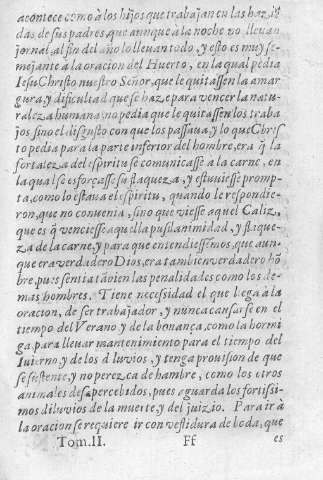 acontece como à los hijos que trabajan en las hazié
das de sus padres, que aunque à la noche no lleuan
jornal, al fin del año lo lleuan todo, y esto es muy se-
mejante à la oracion del Huerto, en la qual pedia
Iesu Christo nuestro Señor, que le quitassen la amar
gura, y dificultad que se haze para vencer la natu-
raleza humana, no pedia que le quitassen los traba
jos sino el disgusto con que los passaua, y lo que Chris
to pedia para la parte inferior del hombre, era q̃ la
fortaleza del espiritu se comunicasse à la carne, en
la qual se esforçasse su flaqueza, y estuuiesse promp
ta, como lo estaua el espiritu, quando le respondie-
ron, que no conuenia, sino que viesse aquel Caliz,
que es q̃ venciesse aquella pusilanimidad, y flaque-
za de la carne, y para que entendiessemos, que aun-
que era verdadero Dios, era tambien verdadero hõ
bre, pues sentia tãbien las penalidades como los de-
mas hombres. Tiene necessidad el que llega à la
oracion, de ser trabajador, y nunca cansarse en el
tiempo del Verano y de la bonança, como la hormi
ga para lleuar mantenimiento para el tiempo del
Iuierno, y de los diluvios, y tenga prouision de que
se sustente, y no perezca de hambre, como los otros
animales desapercebidos, pues aguarda los fortissi-
mos diluvios de la muerte, y del juizio. Para ir à
la oracion se requiere ir con vestidura de boda, que
Tom. II. Ff es